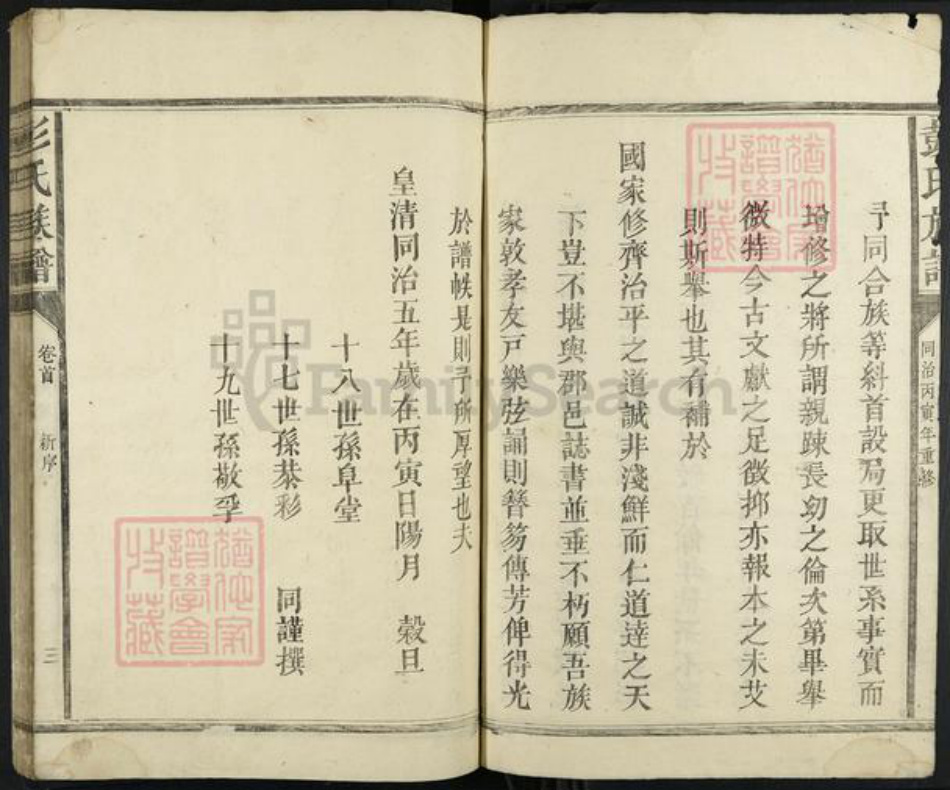 彭氏族譜
同治丙寅年重修
予同合族等糾首設局更取世系事實而
增修之將所謂親踈長幼之倫次第畢舉
微特今古文獻之足徵抑亦報本之未艾
則斯舉也其有補於
國家修齊治平之道誠非淺鮮而仁道達之天
下豈不堪與郡邑誌書並垂不朽願吾族
家敦孝友戸樂弦誦則簪笏傳芳俾得光
於譜帙是則予所厚望也夫
皇清同治五年歲在丙寅日陽月 穀旦
十八世孫阜堂
十七世孫恭彩 同謹撰
十九世孫敬孚
彭氏族譜
卷首 新序
三
譜學會
收藏
譜學會
收藏
FamilySearch